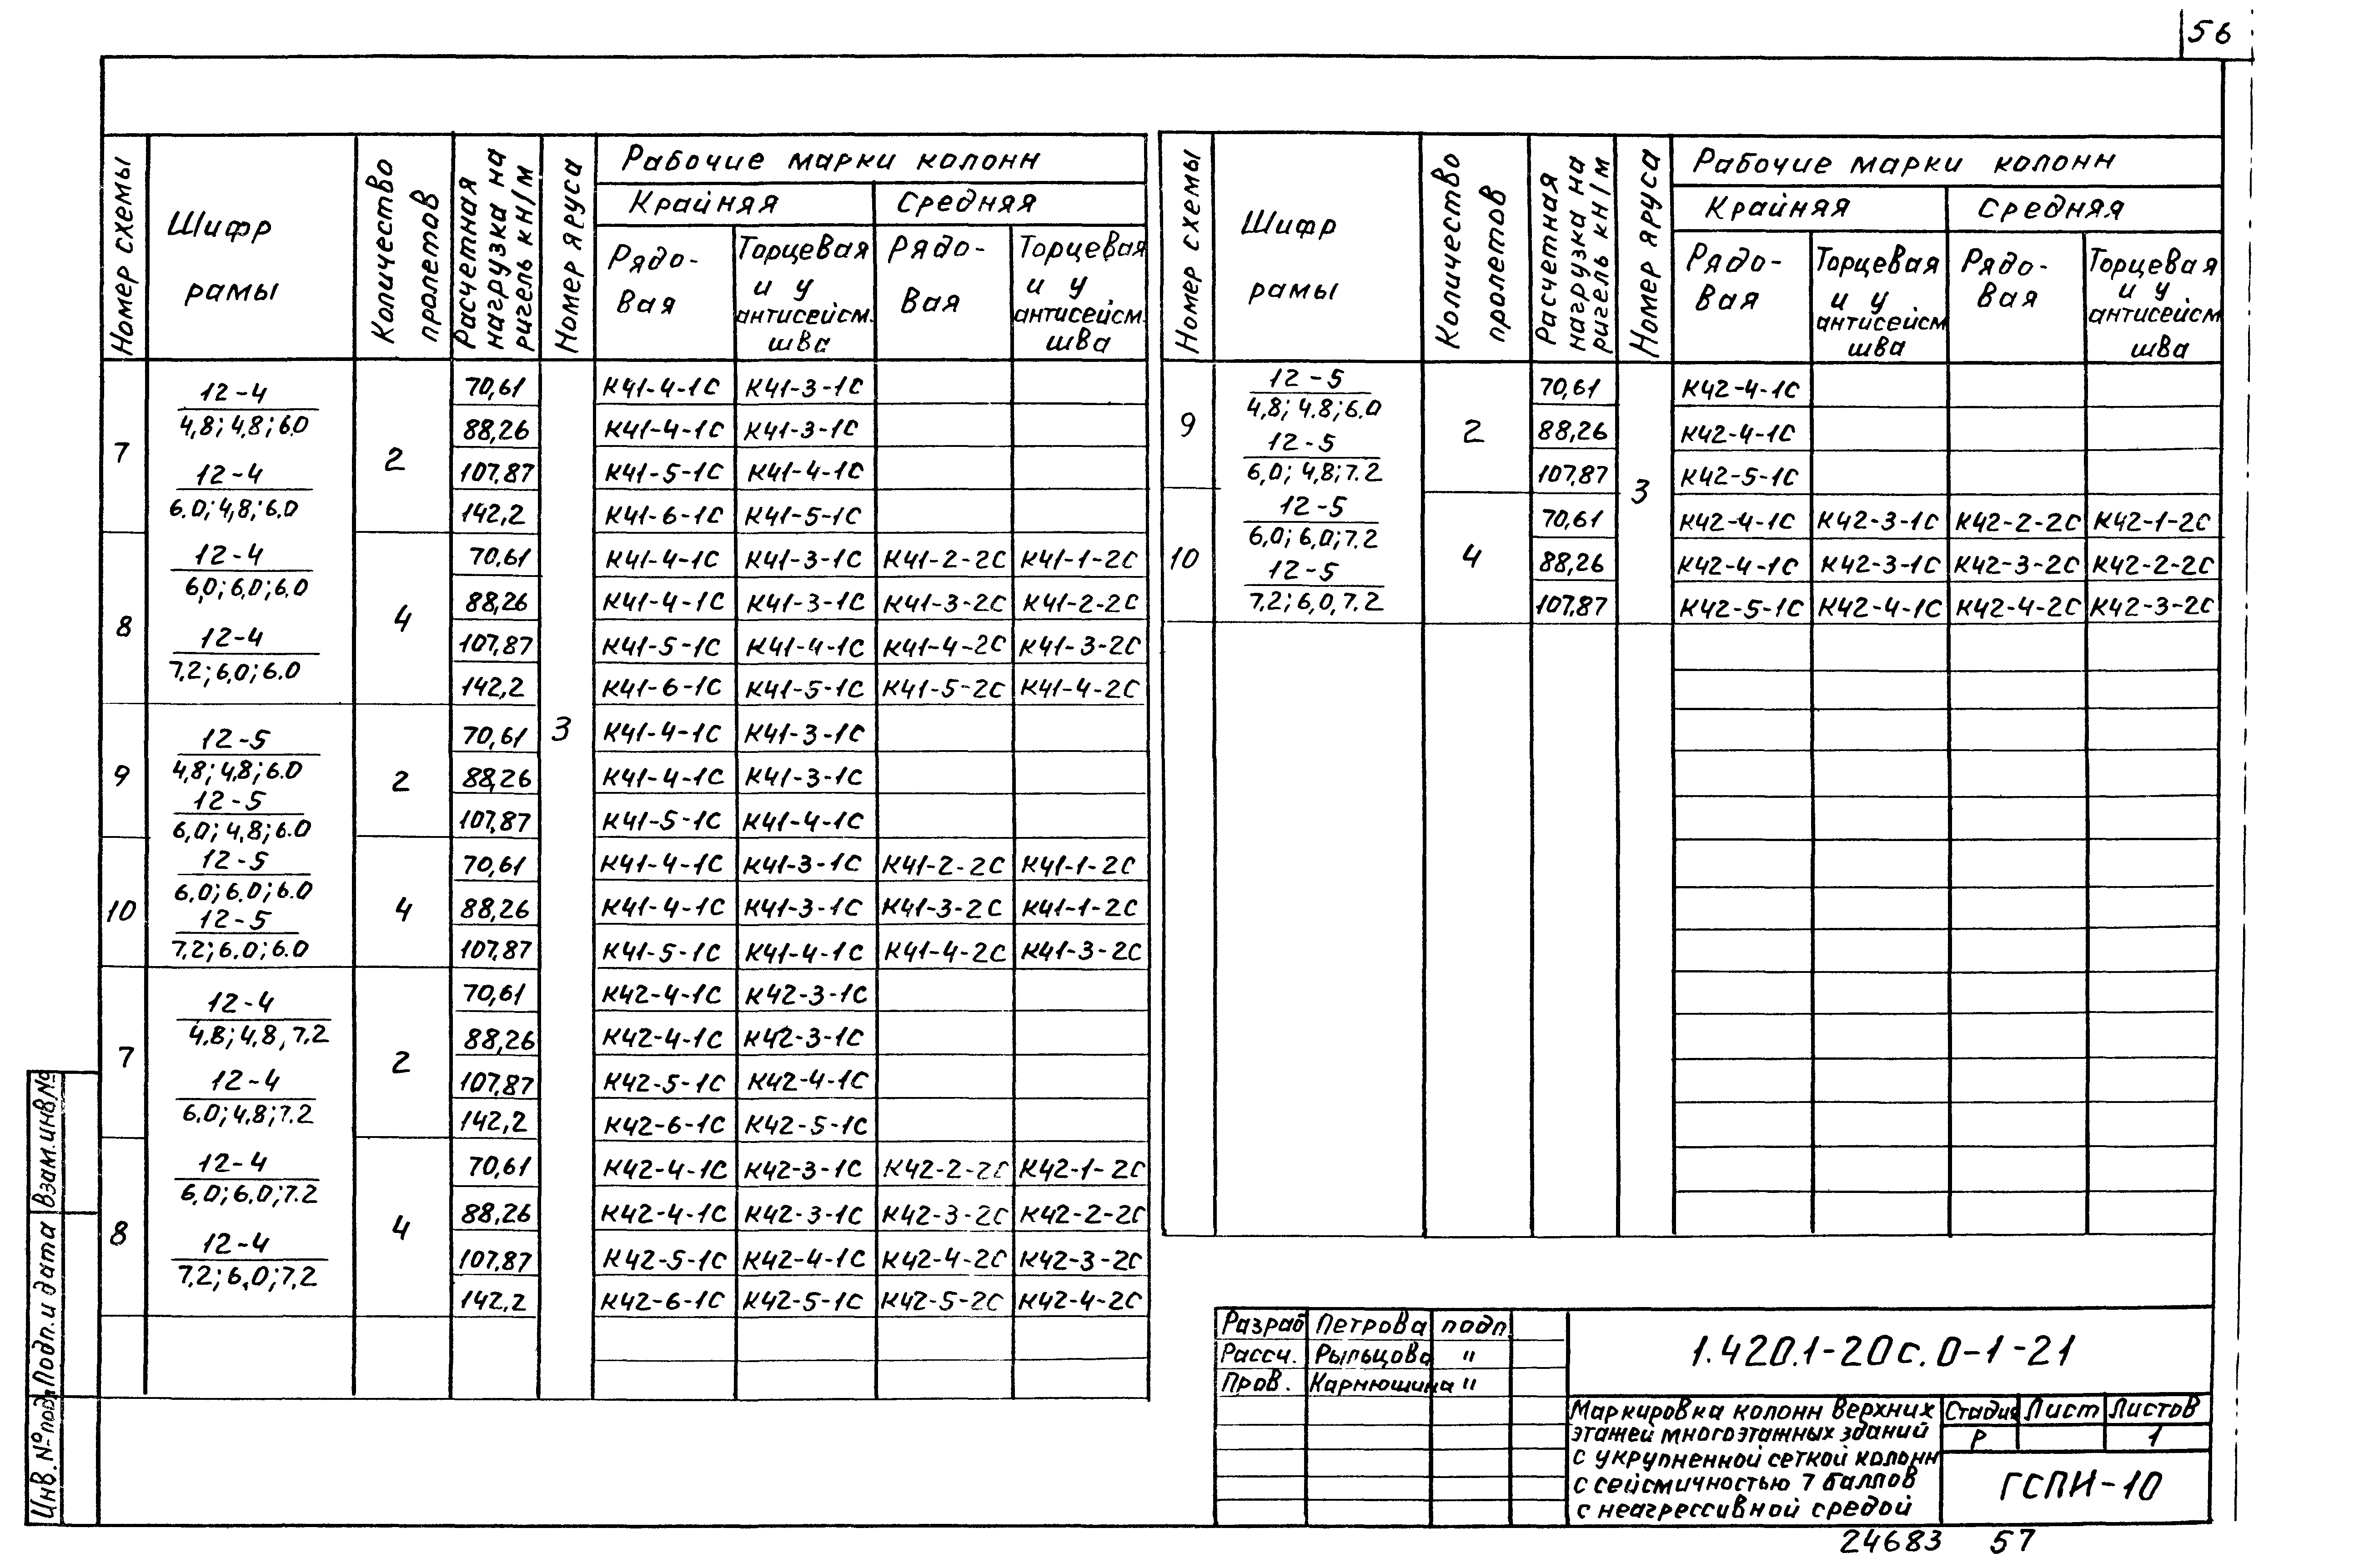 56
Номер схемы
Шифр рамы
Количество пролетов
Расчетная нагрузка на ригель кн/м
Номер яруса
Рабочие марки колонн
Крайняя Средняя
Рядо-вая
Торцевая и у антисейсм. шва
Рядо-вая
Торцевая и у антисейсм. шва
7
12-4
4,8; 4,8; 6.0
12-4
6.0; 4,8; 6.0
2
70,61 К41-4-1С К41-3-1С
88,26 К41-4-1С К41-3-1С
107,87 К41-5-1С К41-4-1С
142,2 К41-6-1С К41-5-1С
8
12-4
6,0; 6,0; 6.0
12-4
7.2; 6,0; 6.0
4
70,61 К41-4-1С К41-3-1С К41-2-2С К41-1-2С
88,26 К41-4-1С К41-3-1С К41-3-2С К41-2-2С
107,87 К41-5-1С К41-4-1С К41-4-2С К41-3-2С
142,2 К41-6-1С К41-5-1С К41-5-2С К41-4-2С
3
9
12-5
4,8; 4,8; 6.0
12-5
6,0; 4,8; 6.0
2
70,61 К41-4-1С К41-3-1С
88,26 К41-4-1С К41-3-1С
107,87 К41-5-1С К41-4-1С
10
12-5
6,0; 6.0; 6.0
12-5
7.2; 6.0; 6.0
4
70,61 К41-4-1С К41-3-1С К41-2-2С К41-1-2С
88,26 К41-4-1С К41-3-1С К41-3-2С К41-1-2С
107,87 К41-5-1С К41-4-1С К41-4-2С К41-3-2С
7
12-4
4,8; 4,8, 7.2
12-4
6.0; 4,8; 7.2
2
70,61 К42-4-1С К42-3-1С
88,26 К42-4-1С К42-3-1С
107,87 К42-5-1С К42-4-1С
142,2 К42-6-1С К42-5-1С
8
12-4
6,0; 6,0; 7.2
12-4
7,2; 6,0; 7,2
4
70,61 К42-4-1С К42-3-1С К42-2-2С К42-1-2С
88,26 К42-4-1С К42-3-1С К42-3-2С К42-2-2С
107,87 К42-5-1С К42-4-1С К42-4-2С К42-3-2С
142,2 К42-6-1С К42-5-1С К42-5-2С К42-4-2С
Номер схемы
Шифр рамы
Количество пролетов
Расчетная нагрузка на ригель кн/м
Номер яруса
Рабочие марки колонн
Крайняя Средняя
Рядо-вая
Торцевая и у антисейсм шва
Рядо-вая
Торцевая и у антисейсм шва
9
12-5
4,8; 4.8; 6.0
12-5
6,0; 4,8; 7.2
2
70,61 К42-4-1С
88,26 К42-4-1С
107,87 К42-5-1С
3
10
12-5
6,0; 6,0; 7.2
12-5
7.2; 6,0, 7.2
4
70,61 К42-4-1С К42-3-1С К42-2-2С К42-1-2С
88,26 К42-4-1С К42-3-1С К42-3-2С К42-2-2С
107,87 К42-5-1С К42-4-1С К42-4-2С К42-3-2С
Разраб Петрова подп
Рассч. Рыльцова "
Пров. Карнюшина "
1.420.1-20с.0-1-21
Маркировка колонн верхних
этажей многоэтажных зданий
с укрупненной сеткой колонн
с сейсмичностью 7 баллов
с неагрессивной средой
Стадия Лист Листов
Р 1
ГСПИ-10
24683 57
Инв. № подл Подп. и дата Взам. инв №